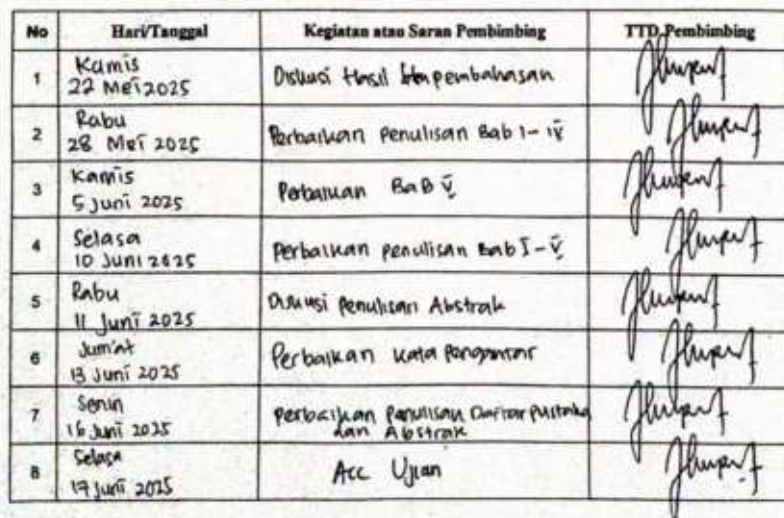 No Hari/Tanggal Kegiatan atau Saran Pembimbing TTD Pembimbing
1 Kamis
22 Mei 2025 Diskusi Hasil pembahasan
2 Rabu
28 Mei 2025 Perbaikan Penulisan Bab I-IV
3 Kamis
5 Juni 2025 Perbaikan BaB V
4 Selasa
10 Juni 2025 Perbaikan penulisan Bab I-V
5 Rabu
11 Juni 2025 Diskusi Penulisan Abstrak
6 Jum'at
13 Juni 2025 Perbaikan Kata Pengantar
7 Senin
16 Juni 2025 Perbaikan Penulisan Daftar Pustaka
dan Abstrak
8 Selasa
17 Juni 2025 Acc Ujian